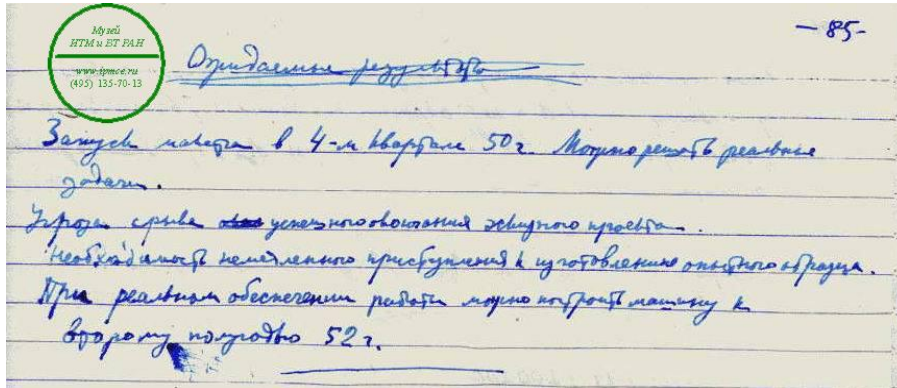 Музей
ИТМ и ВТ РАН
www.ipmce.ru
(495) 135-70-13
-85-
Ожидаемые результаты
Запуск макета в 4-м квартале 50 г. Можно решать реальные
задачи.
Угроза срыва успешного окончания эскизного проекта.
Необходимость немедленного приступления к изготовлению опытного образца.
При реальном обеспечении работы можно построить машину к
второму полугодию 52 г.